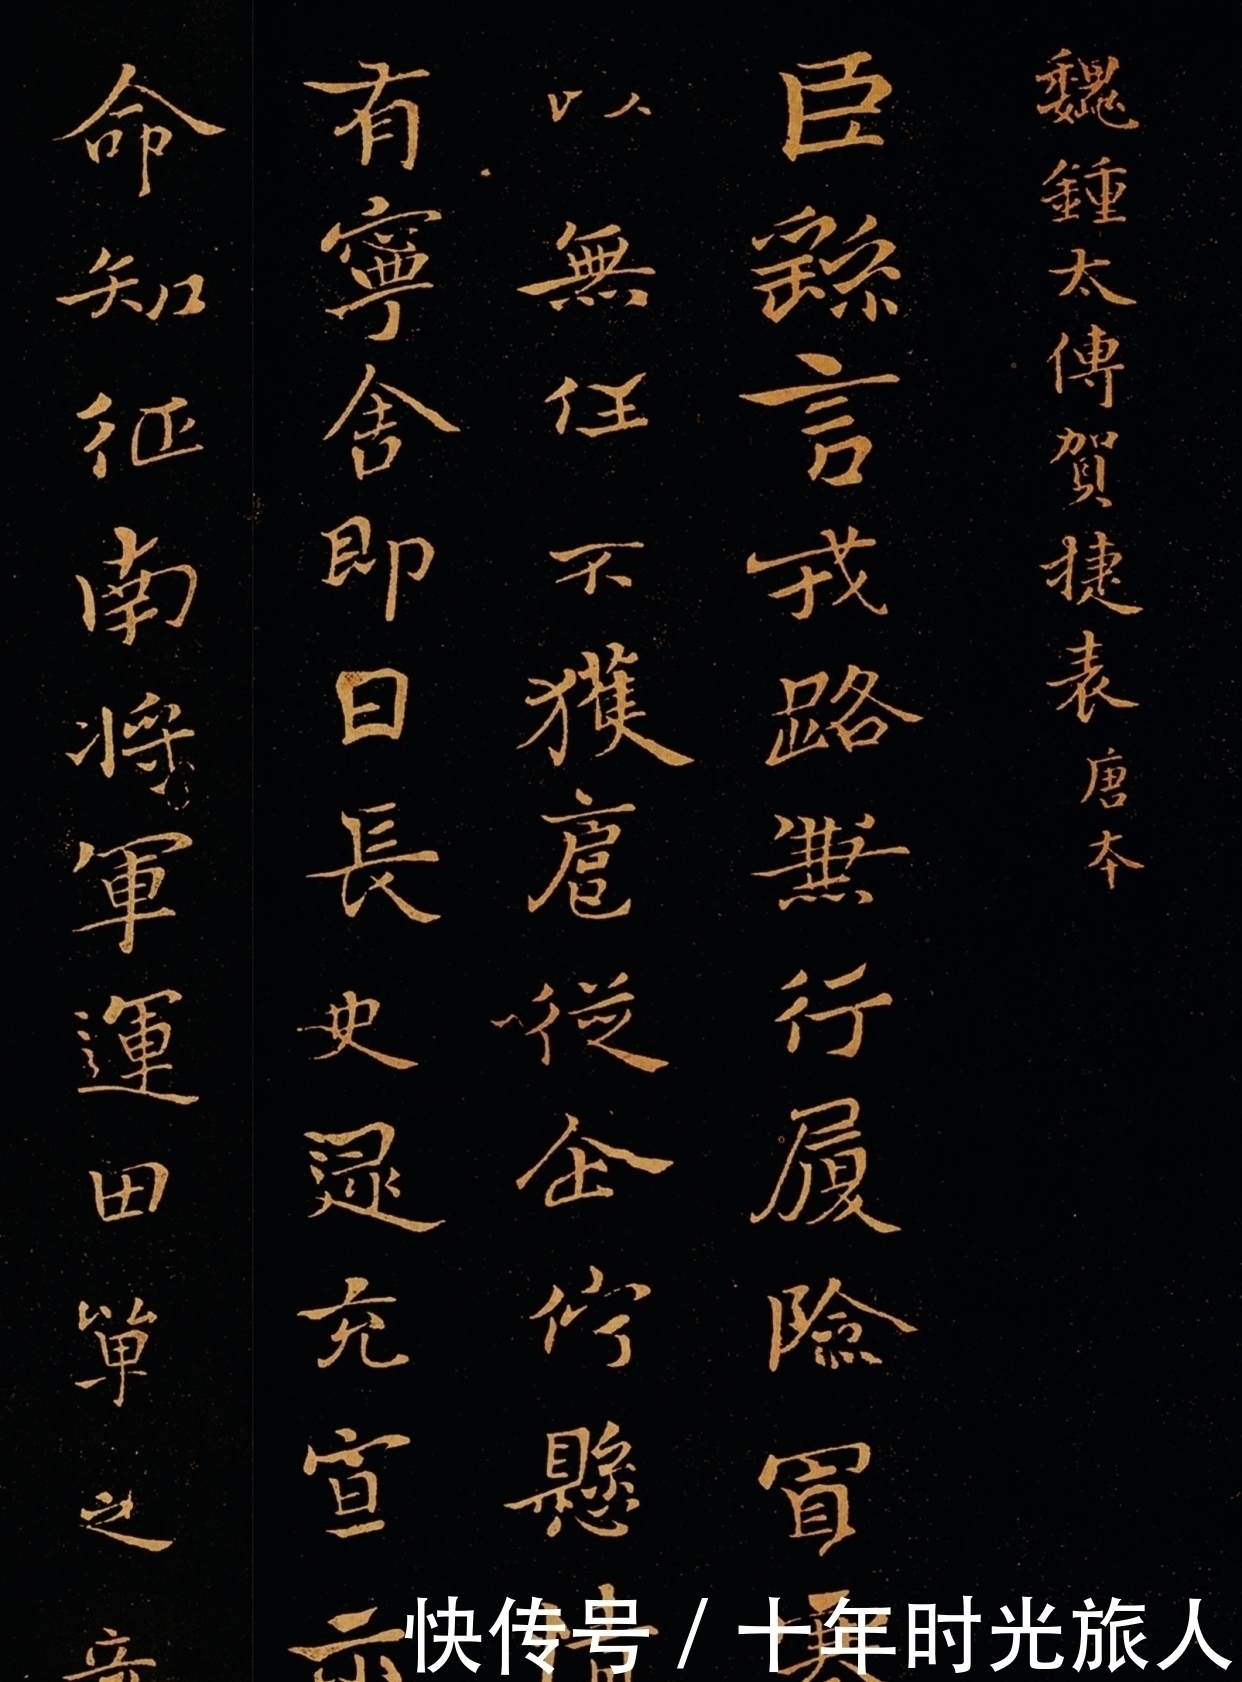 魏鍾太傅賀捷表 唐本
臣繇言戎路兼行履險冒寒
以無任不獲扈從企佇懸情
有寧舍即日長史逯充宣示
命知征南將軍運田單之奇
快传号/十年时光旅人